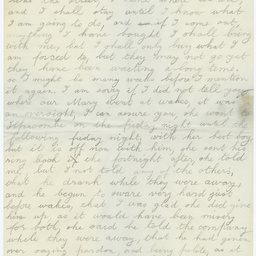 and I shall stay until I know what
I am going to do, and if I come out,
anything I have bought I shall bring
with me, but I shall only buy what I
am forced to, but they may not go yet
they have been waiting a long time,
so I might be many weeks before I mention
it again. I am sorry if I did not tell you
when our Mary went at wakes, it was
an oversight, I can assure you, she went to
on the Friday night until the
following friday night, with her best boy
but it is off now with him, she sent his
ring back the fortnight after, she told
me, but I not told any of the others,
that he drank while they were away,
and he began to swear very hard just
before wakes, that I was glad she did give
him up, as it would have been misery
for both, she said he told the company
while they were away, that he had given
over saying pardon and being polite, as it